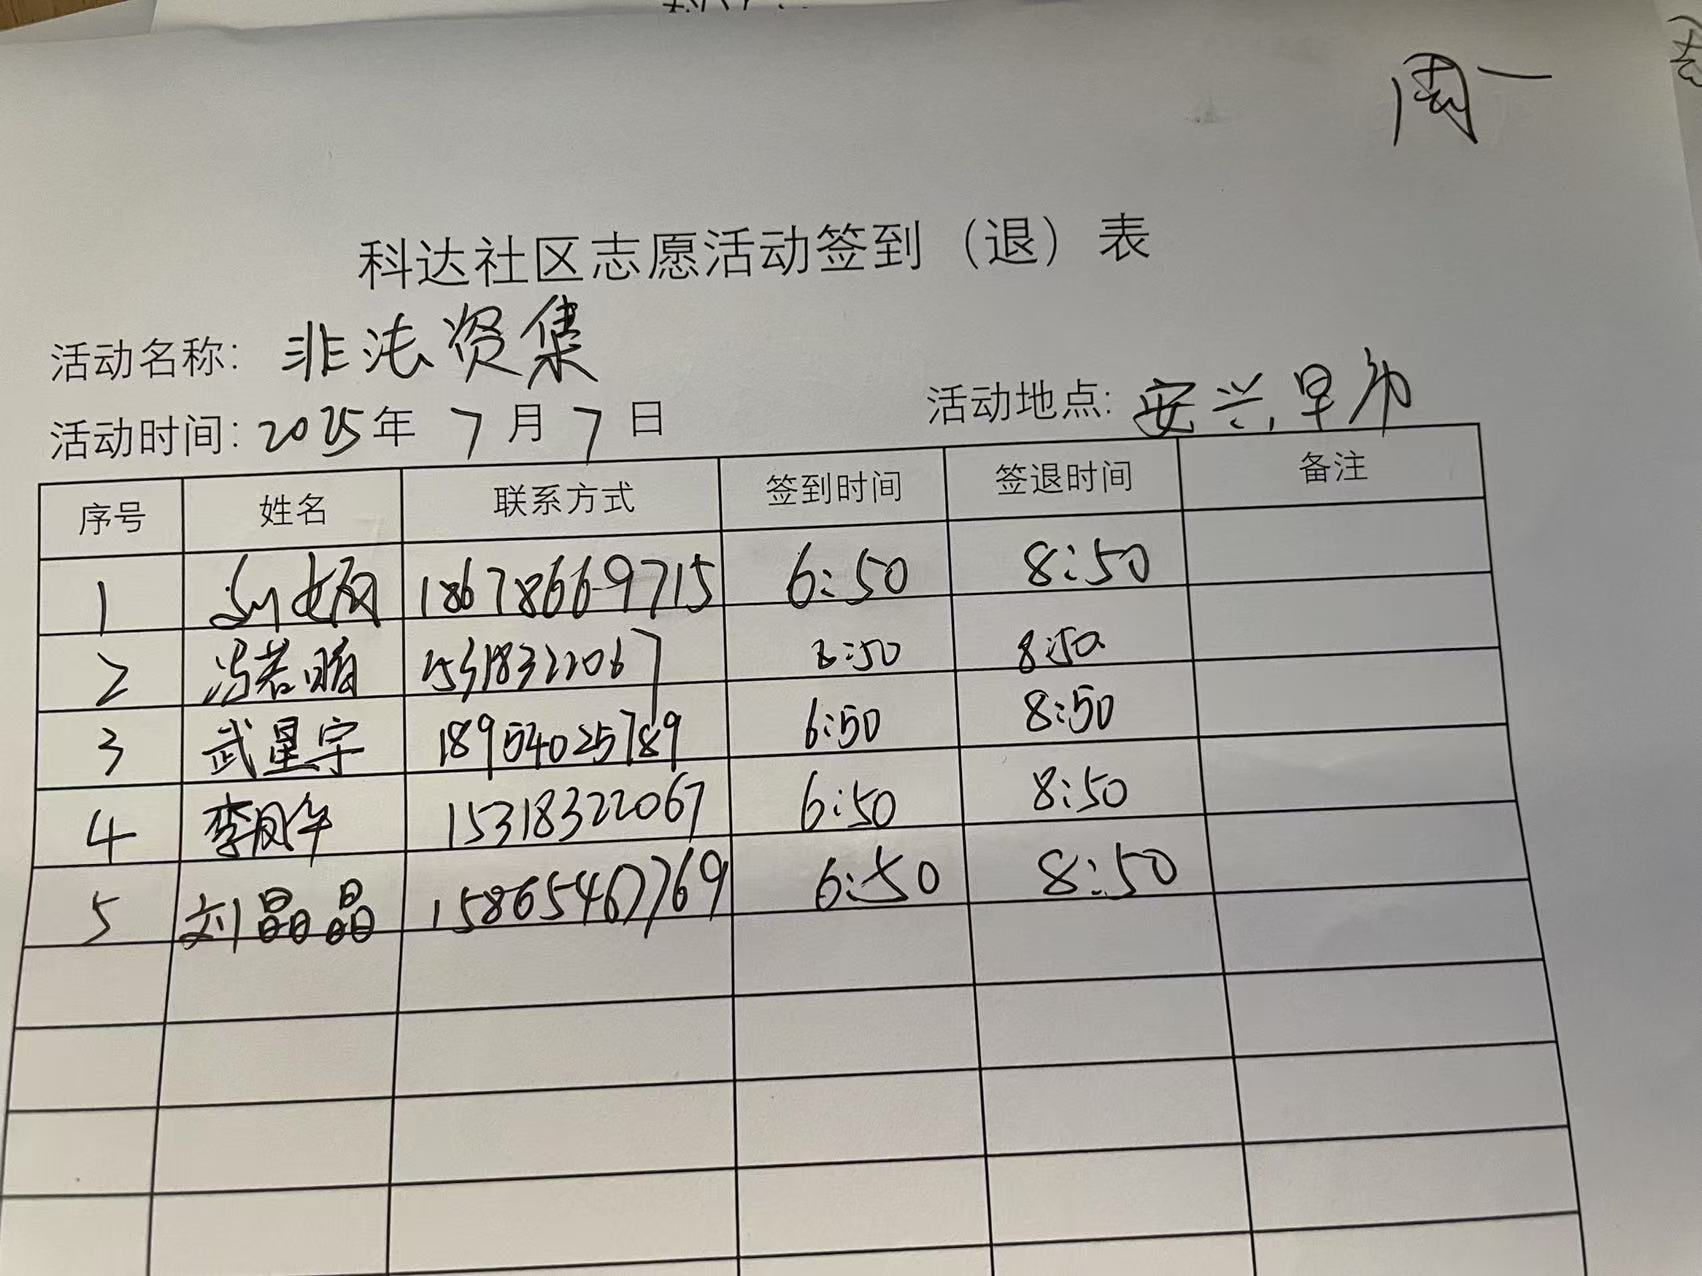 周一
科达社区志愿活动签到（退）表
活动名称：非法资集
活动时间：2025年 7月7日 活动地点：安兴早市
序号 姓名 联系方式 签到时间 签退时间 备注
1 18678669715 6:50 8:50
2 冯若晴 15318322067 6:50 8:50
3 武星宇 18954025789 6:50 8:50
4 李凤华 15318322067 6:50 8:50
5 刘晶晶 15865467769 6:50 8:50